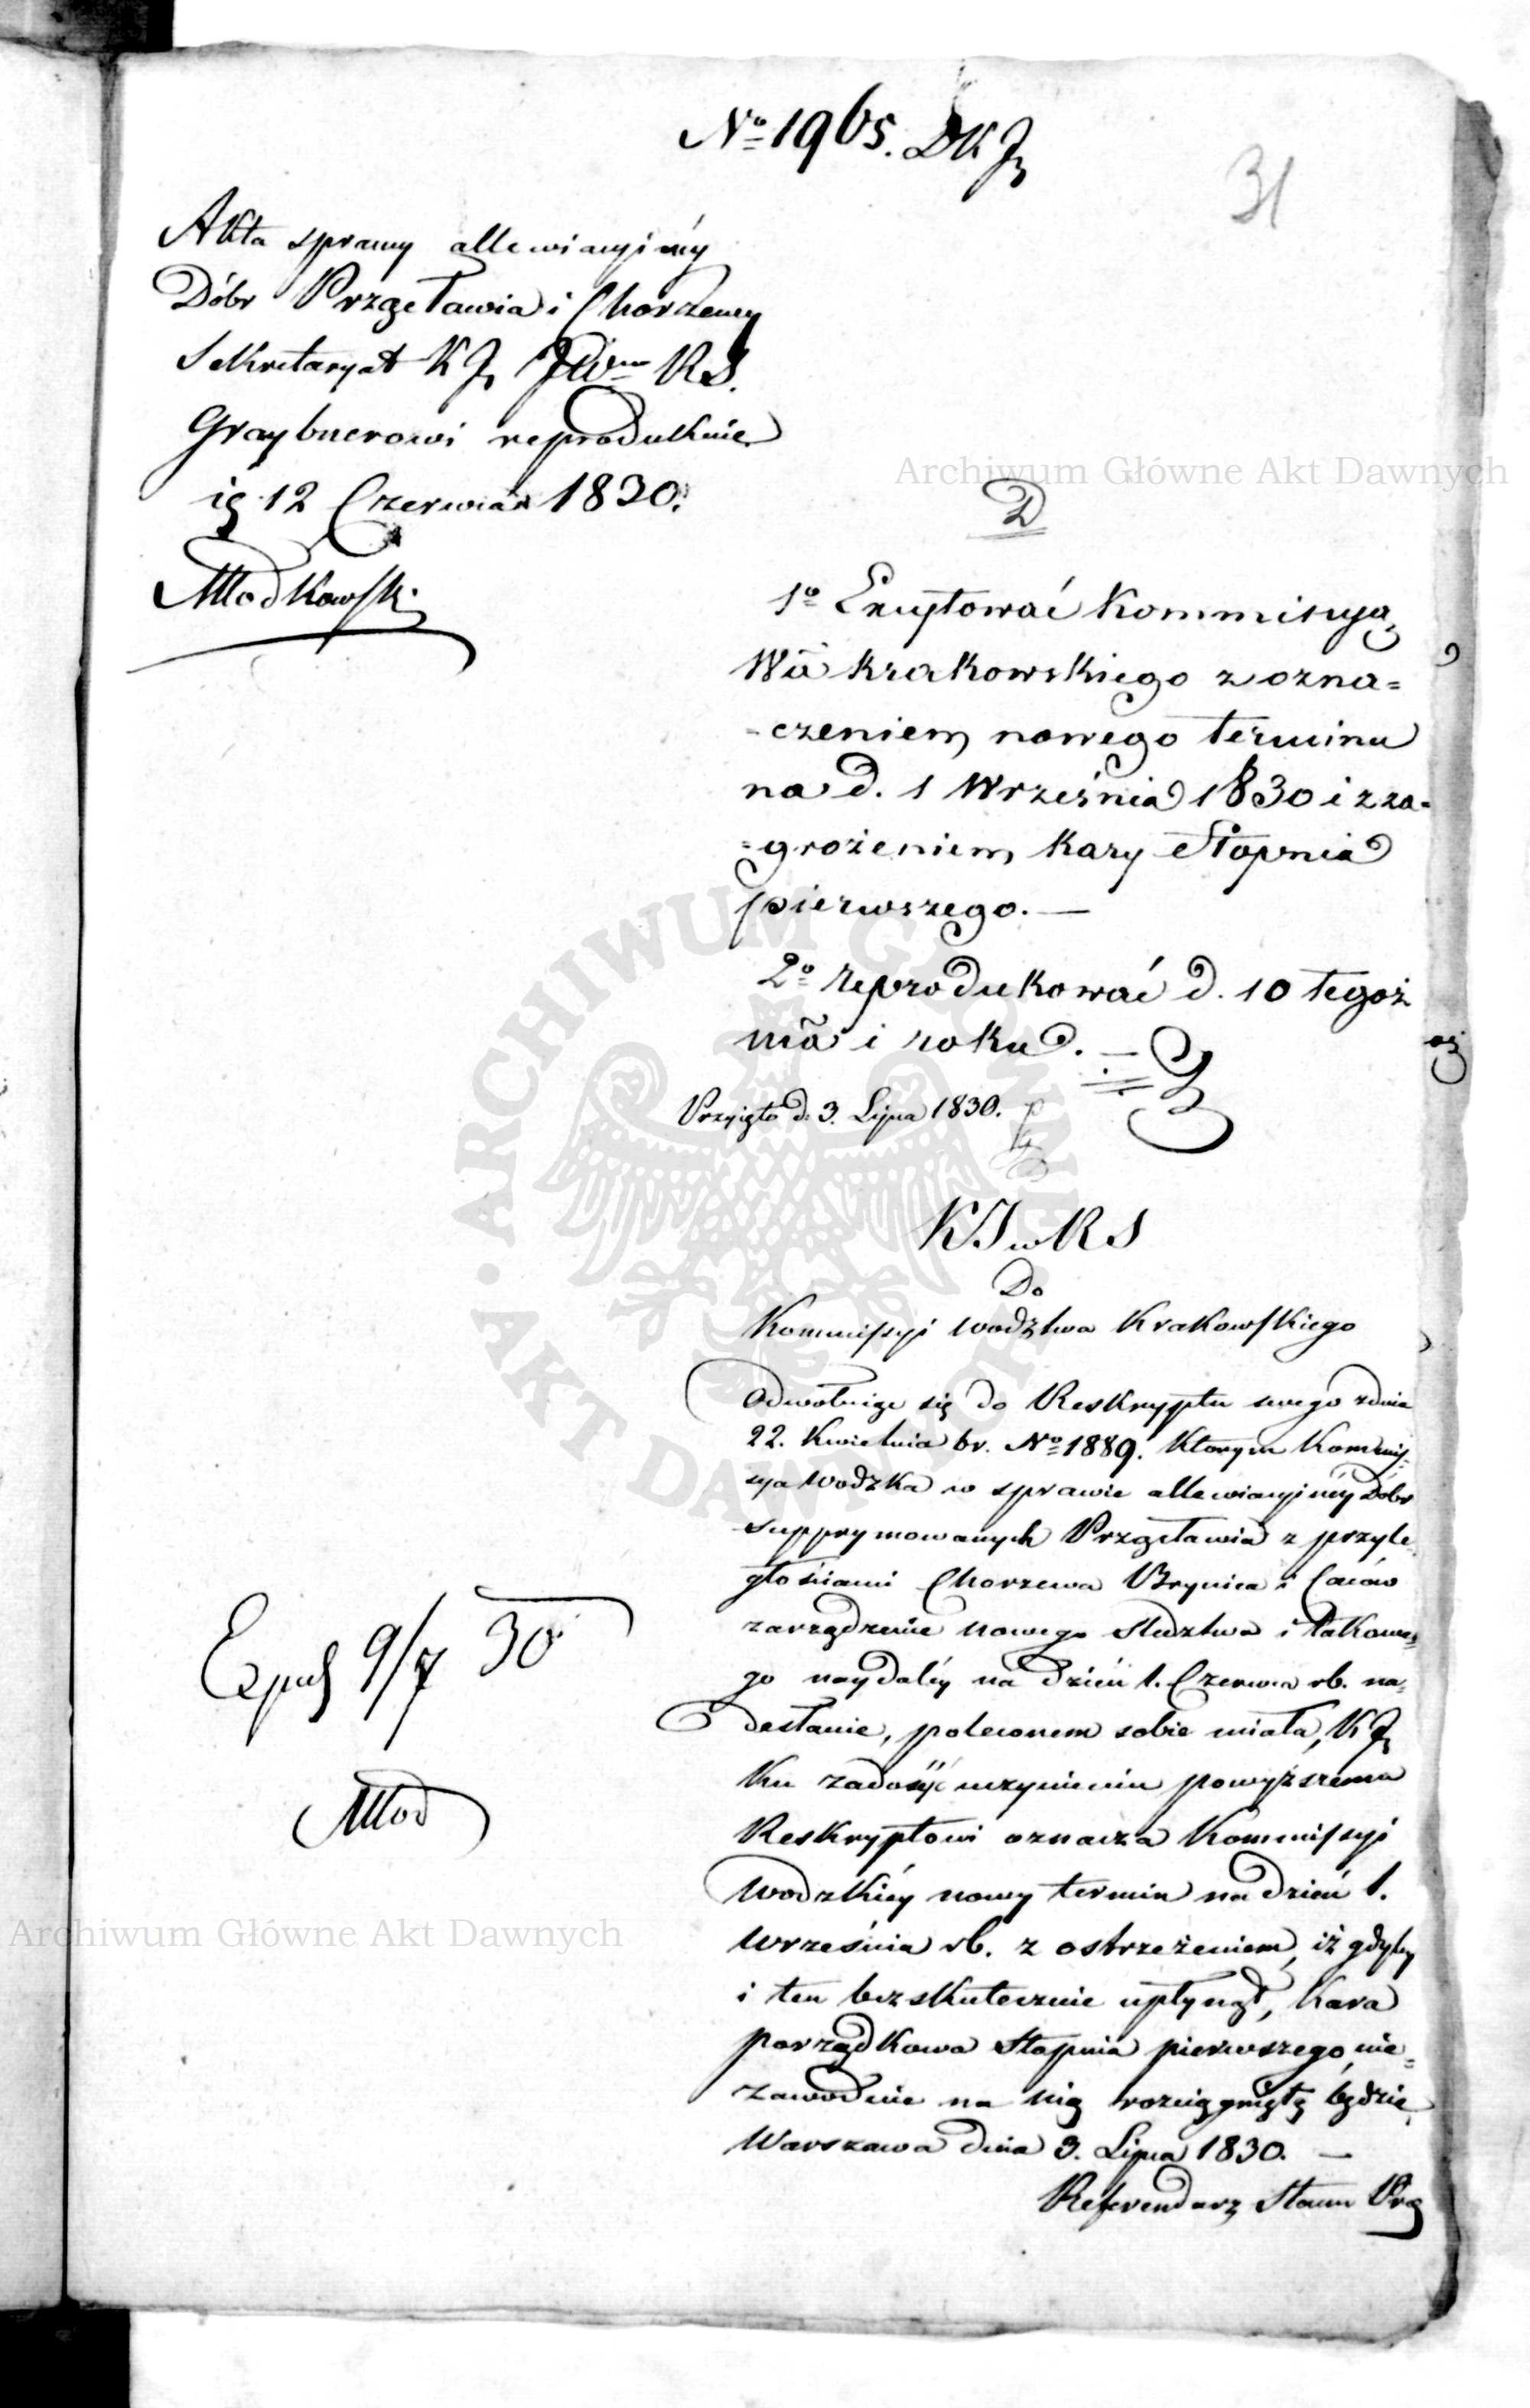 No 1965. DKJ
31
Akta sprawy allewiacyinéy
Dóbr Przęsławia i Chorzewy
Sekretaryat KJ JWmu RS.
Graybnerowi reprodukuie
ię 12 Czerwca 1830.
Młodkowski
D
1o Excytować Kommissyą
Wa Krakowskiego z ozna=
=czeniem nowego terminu
na d. 1 Września 1830 i z za=
=grożeniem kary Stopnia
pierwszego. —
2o reprodukować d. 10 tegoż
ma i roku. —
Przyięto d. 3. Lipca 1830.
KJ w RS
Do
Kommissyi Wodztwa Krakowskiego
Odwołuiąc się do Reskryptu swego z dnia
22. Kwietnia br. No 1889. którym Kommis=
sya Wodzka w sprawie allewiacyinéy Dóbr
supprymowanych Przęsławia z przyle=
głościami Chorzewa Brynica i Caców
zarządzenie nowego Sledztwa i takowe=
go naydaléy na dzień 1. Czerwca rb. na=
desłanie, poleconem sobie miała, KJ
ku zadosyć uczynieniu powyższemu
Reskryptowi oznacza Kommissyi
Wodzkiéy nowy termin na dzień 1.
Września rb. z ostrzeżeniem, iż gdyby
i ten bezskutecznie upłynął, kara
porządkowa Stopnia pierwszego nie=
zawodnie na nią rozciągniętą będzie.
Warszawa dnia 3. Lipca 1830. —
Referendarz Stanu Prez
Exped 9/7 30
Młod
Archiwum Główne Akt Dawnych
ARCHIWUM GŁÓWNE
AKT DAWNYCH
Archiwum Główne Akt Dawnych